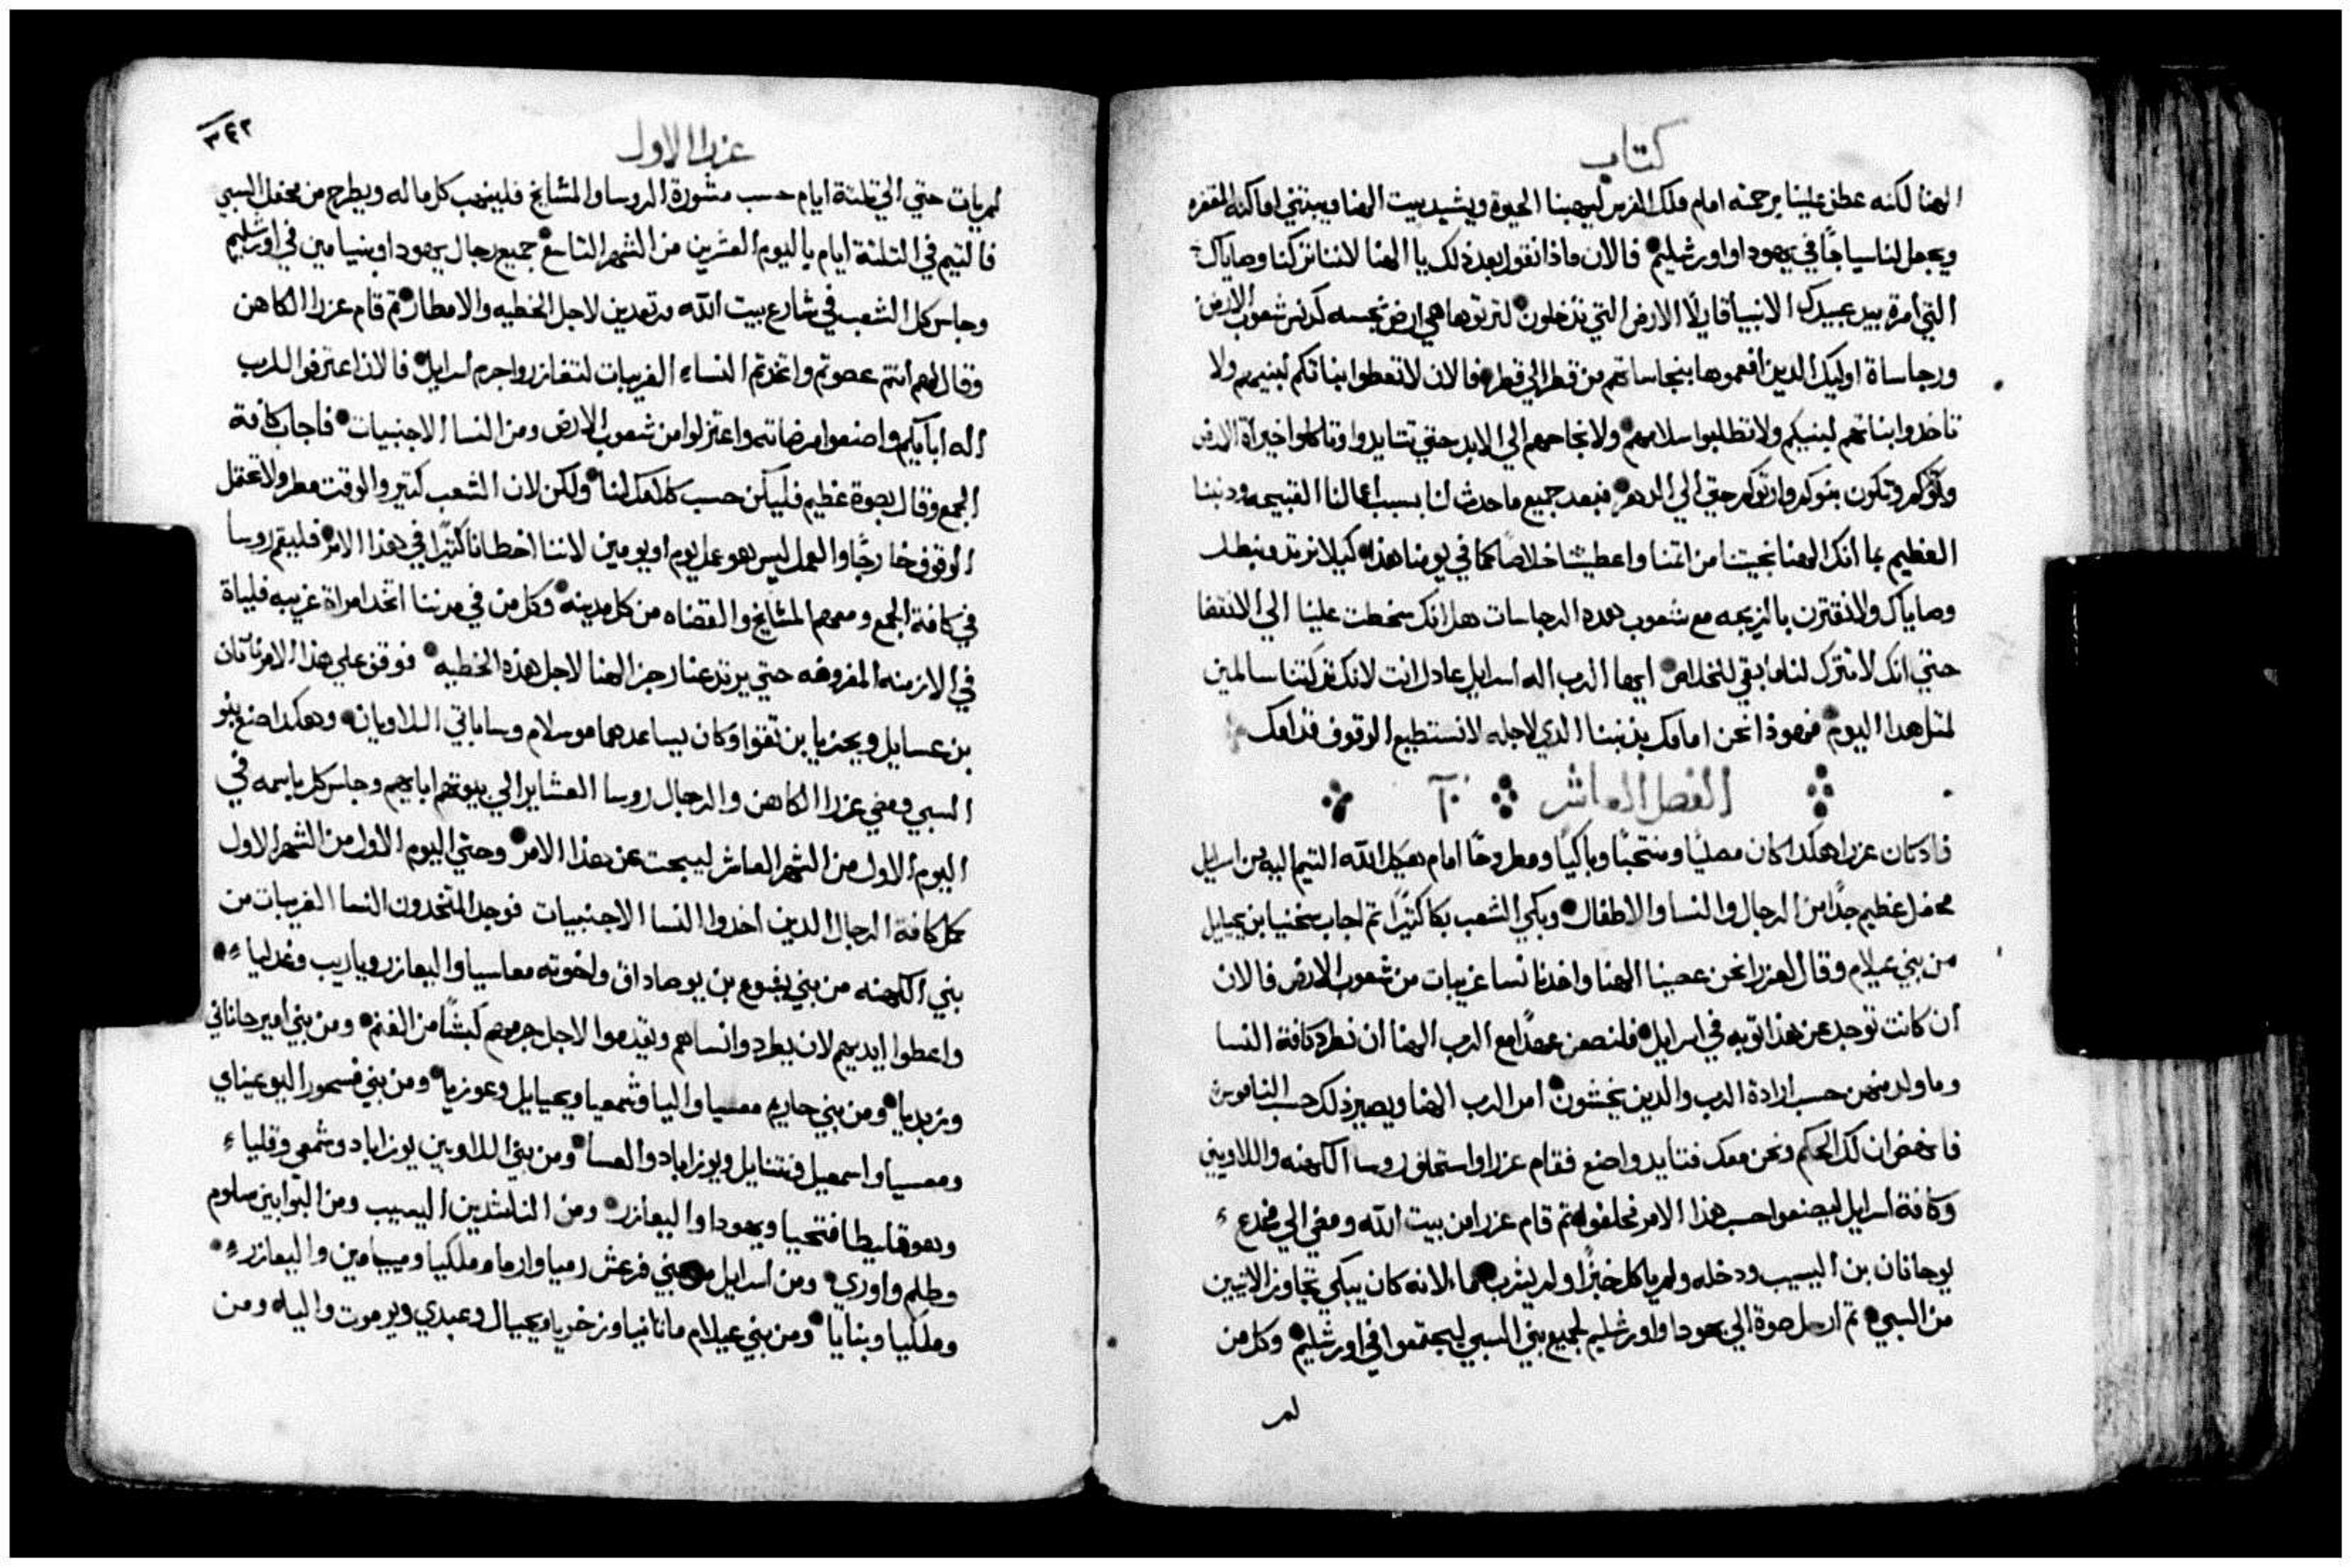 كتاب
الهنا لكنه عطف علينا برحمته امام ملك الفرس ليهبنا الحيوة ويشيد بيت الهنا ويبتني اماكنه المقفره
ويجعل لنا سياجًا في يهودا واورشليم فالان ماذا نقول بعد ذلك يا الهنا لاننا تركنا وصاياك
التي أمرة بيد عبيدك الانبيا قايلًا الارض التي تدخلون لترتوها هي ارض نجسه كدنس شعوب الارض
ورجاساة اوليك الدين افعموها بنجاساتهم من قطر الي قطر فالان لا تعطوا بناتكم لبنيهم ولا
تاخدوا بناتهم لبنيكم ولا تطلبوا سلامهم ولا نجاحهم الي الابد حتي تتايدوا وتاكلوا خيراة الارض
وتكون بنوكم وارتوكم حتي الي الدهر فبعد جميع ما حدث لنا بسبب اعمالنا القبيحه ودنبنا
العظيم بما انك الهنا نجيتنا من اتمنا واعطيتنا خلاصًا كما في يومنا هذا كيلا نرتد ونبطل
وصاياك ولا نقترن بالزيجه مع شعوب هده الرجاسات هل انك سخطت علينا الي الانقضا
حتي انك لا تترك لنا ما بقي للخلاص ايها الرب اله اسرايل عادل انت لانك تركتنا سالمين
لمتل هدا اليوم فهوذا نحن امامك بذنبنا الدي لاجله لا نستطيع الوقوف قدامك
الفصل العاشر ١٠
فاد كان عزرا هكدا كان مصليًا ومنتحبًا وباكيًا ومطروحًا امام هيكل الله التيم اليه من اسرايل
محفل عظيم جدًا من الرجال والنسا والاطفال وبكي الشعب بكا كتيرًا تم اجاب سخنيا بن يحيايل
من بني عيلام وقال لعزرا نحن عصينا الهنا واخدنا نسا غريبات من شعوب الارض فالان
ان كانت توجد عن هذا توبه في اسرايل فلنصعن عهدًا مع الرب الهنا ان نطرد كافة النسا
وما ولد منهن حسب ارادة الرب والدين يخشون امر الرب الهنا ويصير ذلك حسب الناموس
فانهض ان لك الحكم ونحن معك فتايد واصنع فقام عزرا واستحلف روسا الكهنه واللاويين
وكافة اسرايل ليصنعوا حسب هذا الامر فحلفوا تم قام عزرا من بيت الله ومضي الي مخدع
يوحانان بن اليسيب ودخله ولم ياكل خبزًا ولم يشرب ماء لانه كان يبكي تجاوز الاتيين
من السبي تم ارسل صوة الي يهودا واورشليم لجميع بني السبي ليجتمعوا في اورشليم وكل من
لم
عزرا الاول
٣٤٢
لم يات حتي الي تلتة ايام حسب مشورة الروسا والمشايخ فلينهب كل ماله ويطرح من محفل السبي
فالتيم في التلتة ايام باليوم العشرين من الشهر التاسع جميع رجال يهودا وبنيامين في اورشليم
وجلس كل الشعب في شارع بيت الله مرتعدين لاجل الخطيه والامطار تم قام عزرا الكاهن
وقال لهم انتم عصوتم واتخدتم النساء الغريبات لتتغازر واجرم اسرايل فالان اعترفوا للرب
اله ابايكم واصنعوا مرضاته واعتزلوا من شعوب الارض ومن النسا الاجنبيات فاجاب كافة
الجمع وقال بصوة عظيم فليكن حسب كلامك لنا ولكن لان الشعب كتير والوقت مطر ولا نحتمل
الوقوف خارجًا والعمل ليس هو عمل يوم او يومين لاننا اخطانا كتيرًا في هذا الامر فليقم روسا
في كافة الجمع ومعهم المشايخ والقضاه من كل مدينه وكل من في مدننا اتخد امراة غريبه فلياة
في الازمنه المفروضه حتي يرتد عنا رجز الهنا لاجل هذه الخطيه فوقف علي هذا الامر ناتان
بن عسايل ويحزيا بن تقوا وكان يساعدهما موسلام وساباتي اللاويان وهكدا صنع بنو
السبي ومضي عزرا الكاهن والرجال روسا العشاير الي بيوتهم ابايهم وجلس كل باسمه في
اليوم الاول من الشهر العاشر ليبحت عن هذا الامر وحتي اليوم الاول من الشهر الاول
كمل كافة الرجال الدين اخدوا النسا الاجنبيات فوجد المتخدون النسا الغريبات من
بني الكهنه من بني يشوع بن يوصاداق واخوته معاسيا واليعازر وياريب وغدليا
واعطوا ايديهم لان يطردوا نساهم ويقدموا لاجل جرمهم كبشًا من الغنم ومن بني امير حاناني
وزبديا ومن بني حاريم معسيا واليا وشمعيا ويحيايل وعوزيا ومن بني فسحور اليوعيناي
ومعسيا واسمعيل ونتنايل ويوزاباد والعسا ومن بني اللاويين يوزاباد وشمعي وقليا
وهو قليطا فتحيا ويهودا واليعازر ومن الناشدين اليسيب ومن البوابين سلوم
وطلم واوري ومن اسرايل من بني فرعش رميا وازما وملكيا وميامين واليعازر
وملكيا وبنايا ومن بني عيلام ماتانيا وزخريا ويحيال وعبدي ويرموت واليا ومن